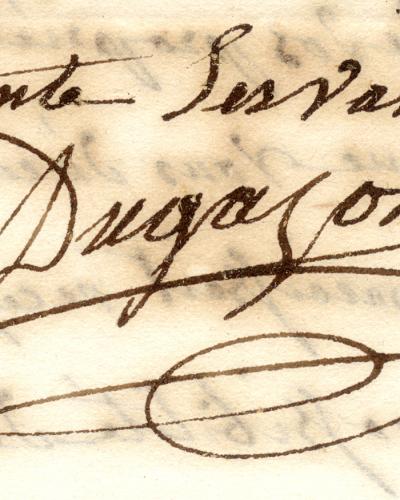 nte Servan
Dugazon